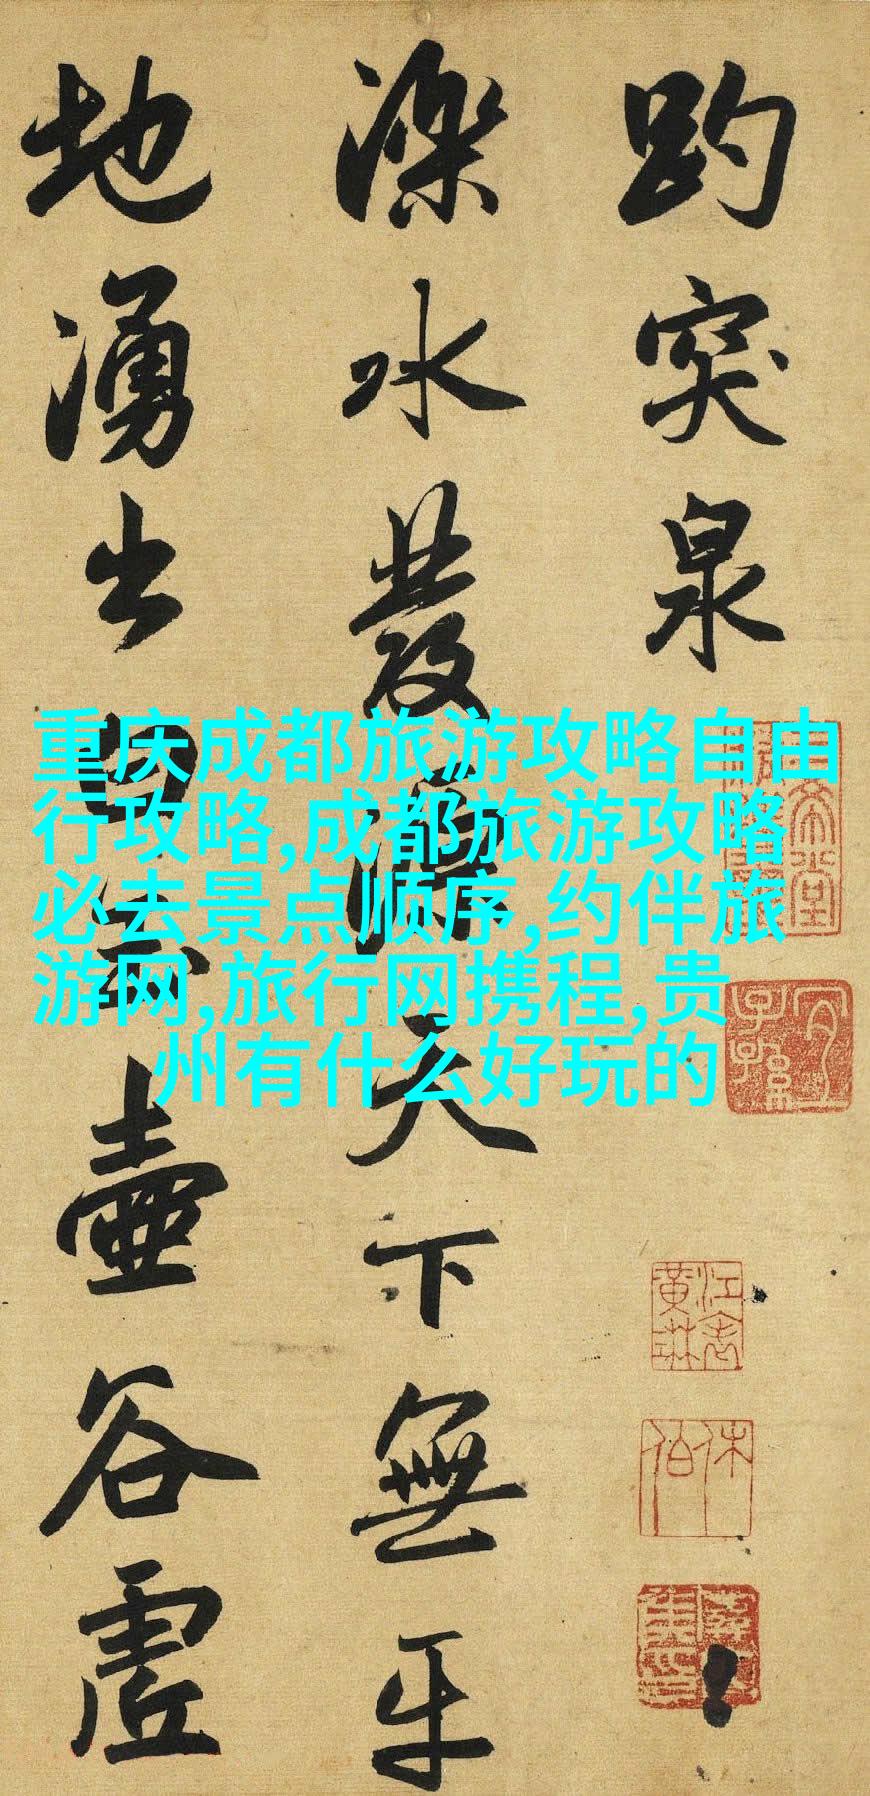 趵突泉
濼水發源天下無
地湧出白玉壺谷虛
重庆成都旅游攻略自由
行攻略,成都旅游攻略
必去景点顺序,约伴旅
游网,旅行网携程,贵
州有什么好玩的